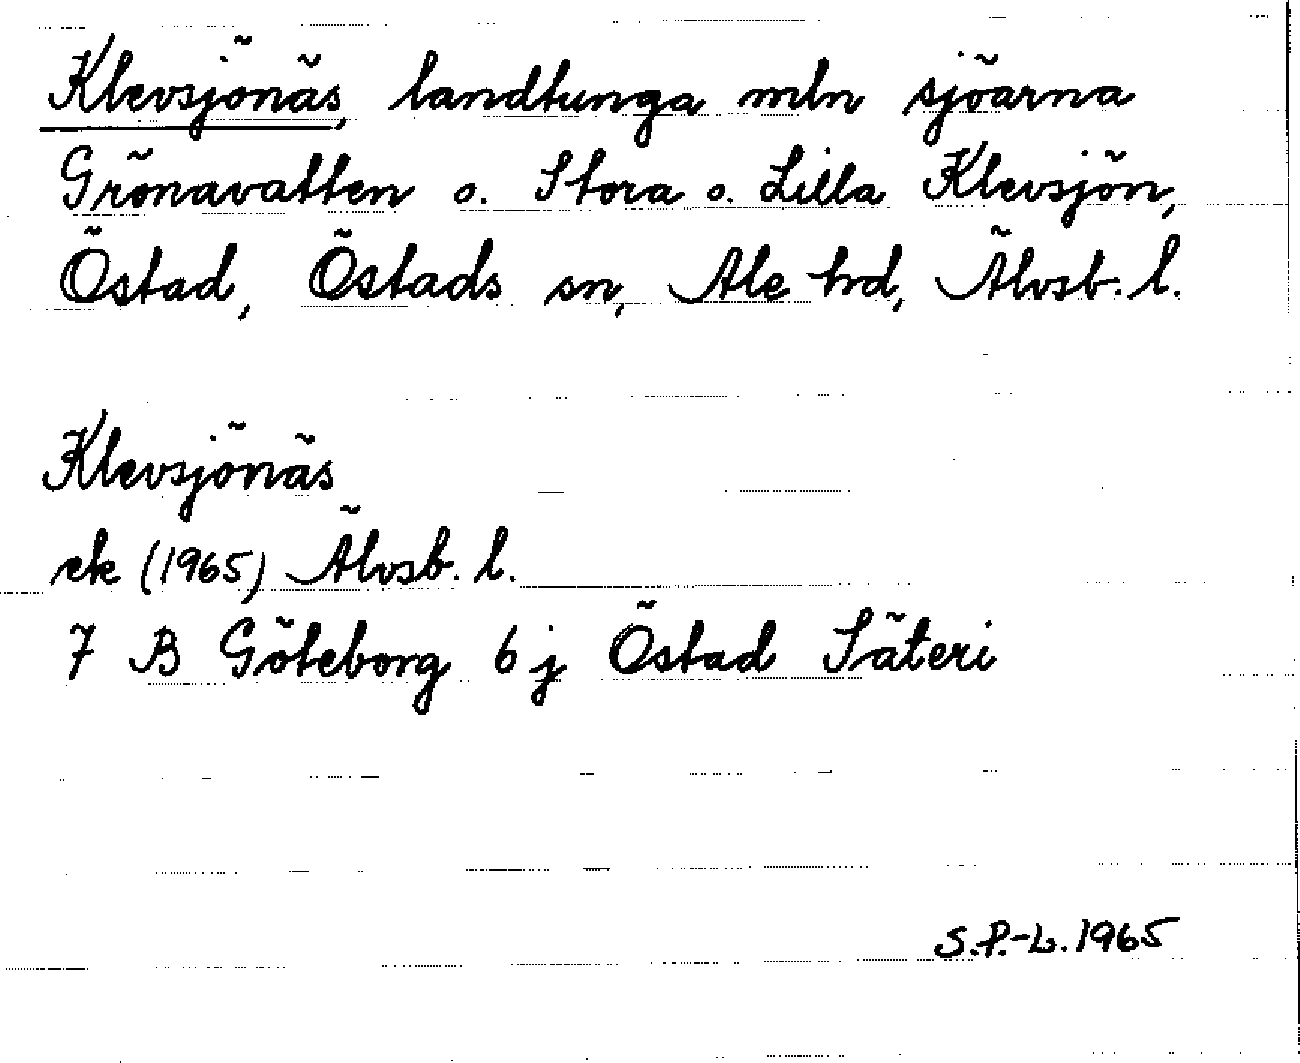 Klevsjönäs, landtunga mln sjöarna
Grönavatten o. Stora o. Lilla Klevsjön,
Östad, Östads sn, Ale hd, Älvsb. l.
Klevsjönäs
ek (1965) Älvsb. l.
7 B Göteborg 6 j Östad Säteri
S.P.-L. 1965